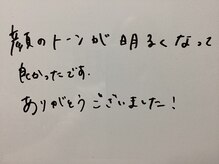 顔のトーンが明るくなって
良かったです.
ありがとうございました!